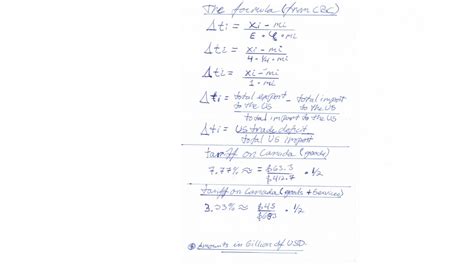 The formula (from CBC)
Δti = xi - mi / ε * φ * mi
Δti = xi - mi / 4 * 1/4 * mi
Δti = xi - mi / 1 * mi
Δti = total export to the US - total import to the US / total import to the US
Δti = US trade deficit / total US import
tariff on Canada (goods)
7.77% ≈ = $63.3 / $412.7 * 1/2
tariff on Canada (goods + services)
≈ $45 * 1/2
Amounts in Billion of USD